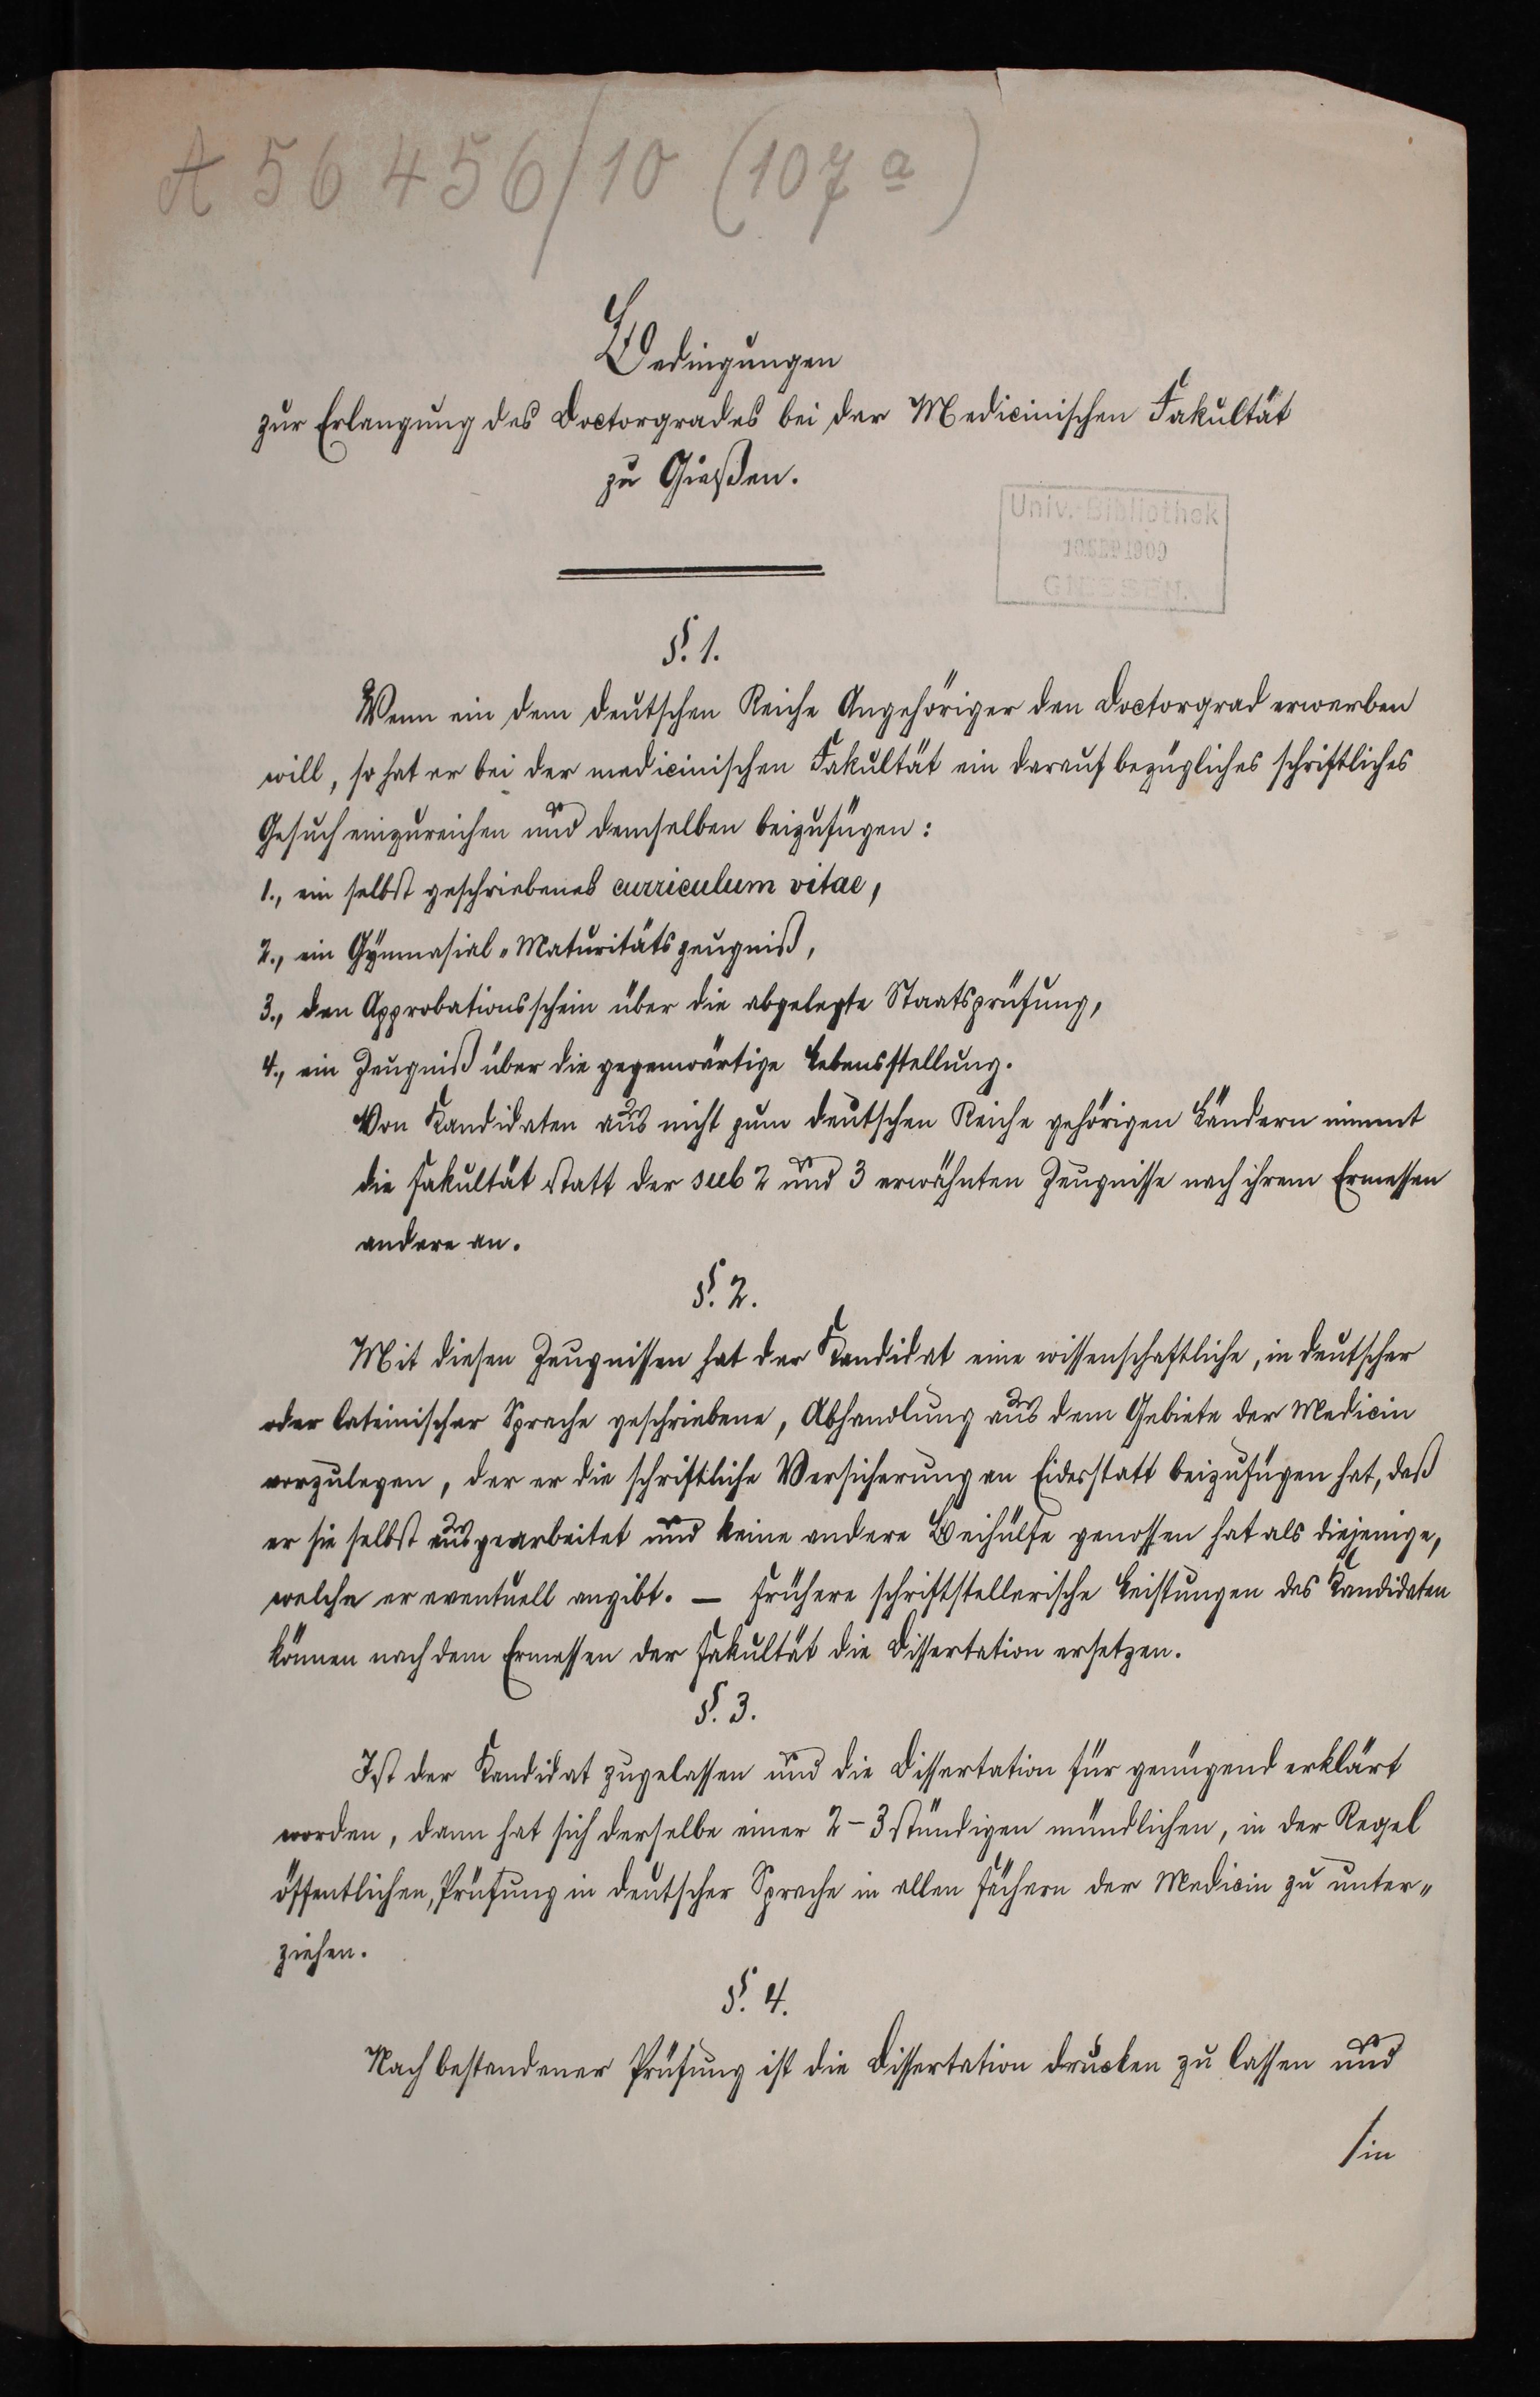 A 56456/10 (107a)
Bedingungen
zur Erlangung des Doctorgrades bei der Medicinischen Fakultät
zu Gießen.
Univ.-Bibliothek
GIESSEN.
§. 1.
Wenn ein dem deutschen Reiche Angehöriger den Doctorgrad erwerben
will, so hat er bei der medicinischen Fakultät ein darauf bezügliches schriftliches
Gesuch einzureichen und demselben beizufügen:
1., ein selbst geschriebenes curriculum vitae,
2., ein Gymnasial-Maturitätszeugniß,
3., den Approbationsschein über die abgelegte Staatsprüfung,
4., ein Zeugniß über die gegenwärtige Lebensstellung.
Von Kandidaten aus nicht zum deutschen Reiche gehörigen Ländern nimmt
die Fakultät statt der sub 2 und 3 erwähnten Zeugnisse nach ihrem Ermessen
andere an.
§. 2.
Mit diesen Zeugnissen hat der Kandidat eine wissenschaftliche, in deutscher
oder lateinischer Sprache geschriebene, Abhandlung aus dem Gebiete der Medicin
vorzulegen, der er die schriftliche Versicherung an Eidesstatt beizufügen hat, daß
er sie selbst ausgearbeitet und keine andere Beihülfe genossen hat als diejenige,
welche er eventuell angibt. — Frühere schriftstellerische Leistungen des Kandidaten
können nach dem Ermessen der Fakultät die Dissertation ersetzen.
§. 3.
Ist der Kandidat zugelassen und die Dissertation für genügend erklärt
worden, dann hat sich derselbe einer 2-3 stündigen mündlichen, in der Regel
öffentlichen, Prüfung in deutscher Sprache in allen Fächern der Medicin zu unter-
ziehen.
§. 4.
Nach bestandener Prüfung ist die Dissertation drucken zu lassen und
/in